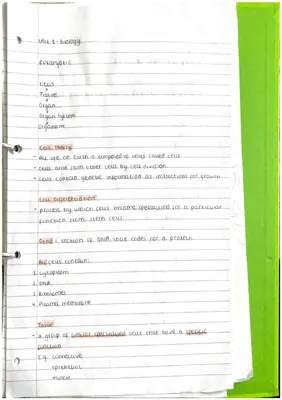 Unit 1 - Biology
Eukaryotic
Cells
Tissue
Organ
Organ System
Organism
Cell theory
- All life on Earth is composed of units called cells
- Cells arise from other cells by cell division
- Cells contain genetic information as instructions for growth
Cell Differentiation
- process by which cells become specialised for a particular
function from stem cells
Gene: section of DNA that codes for a protein
All cells contain:
1. cytoplasm
2. DNA
3. Ribosomes
4. Plasma membrane
Tissue
- a group of similar specialised cells that have a specific
function
E.g. connective
epithelial
muscle